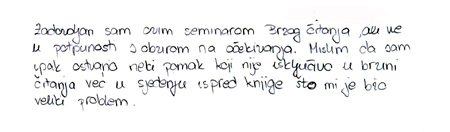 Zadovoljan sam ovim seminarom Brzog čitanja, ali ne
u potpunosti s obzirom na očekivanja. Mislim da sam
ipak ostvario neki pomak koji nije isključivo u brzini
čitanja već u sjedenju ispred knjige što mi je bio
veliki problem.